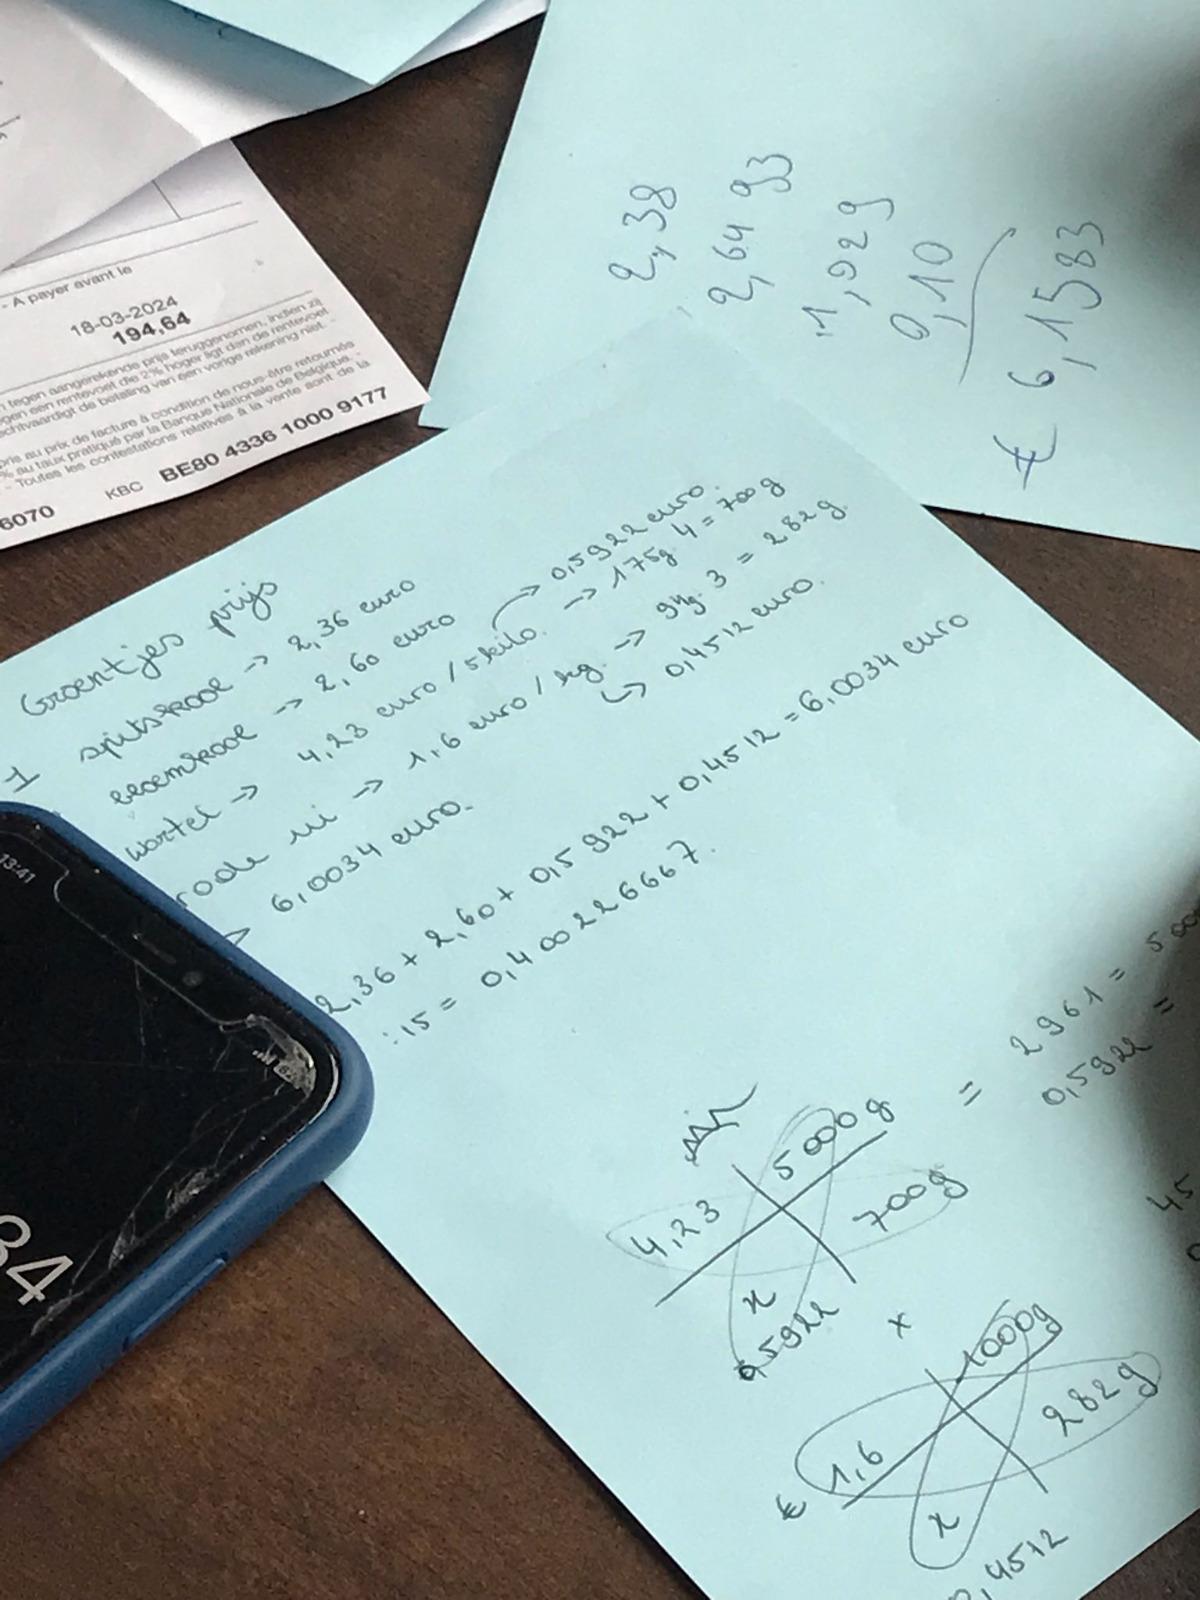 - A payer avant le
18-03-2024
194,64
n tegen aangerekende prijs teruggenomen, indien zij
gen een rentevoet die 2% hoger ligt dan de rentevoet
echtvaardigt de betaling van een vorige rekening niet. -
pris au prix de facture à condition de nous-être retournés
% au taux pratiqué par la Banque Nationale de Belgique. -
- Toutes les contestations relatives à la vente sont de la
6070 KBC BE80 4336 1000 9177
2,38
2,6493
1,929
0,10
€ 6,1583
Groentjes prijs
1 spitskool -> 2,36 euro
bloemkool -> 2,60 euro
wortel -> 4,23 euro / 5 kilo. -> 0,5922 euro.
-> 175g. 4 = 700g
rode ui -> 1,6 euro / kg. -> 94g. 3 = 282g.
↳ 0,4512 euro.
6,0034 euro.
2,36 + 2,60 + 0,5922 + 0,4512 = 6,0034 euro
:15 = 0,400226667.
4,23 5000g = 2961 = 500
x 700g 0,5922 =
0,5922
x
45
€ 1,6 1000g
x 282g
0,4512
13:41
82
34